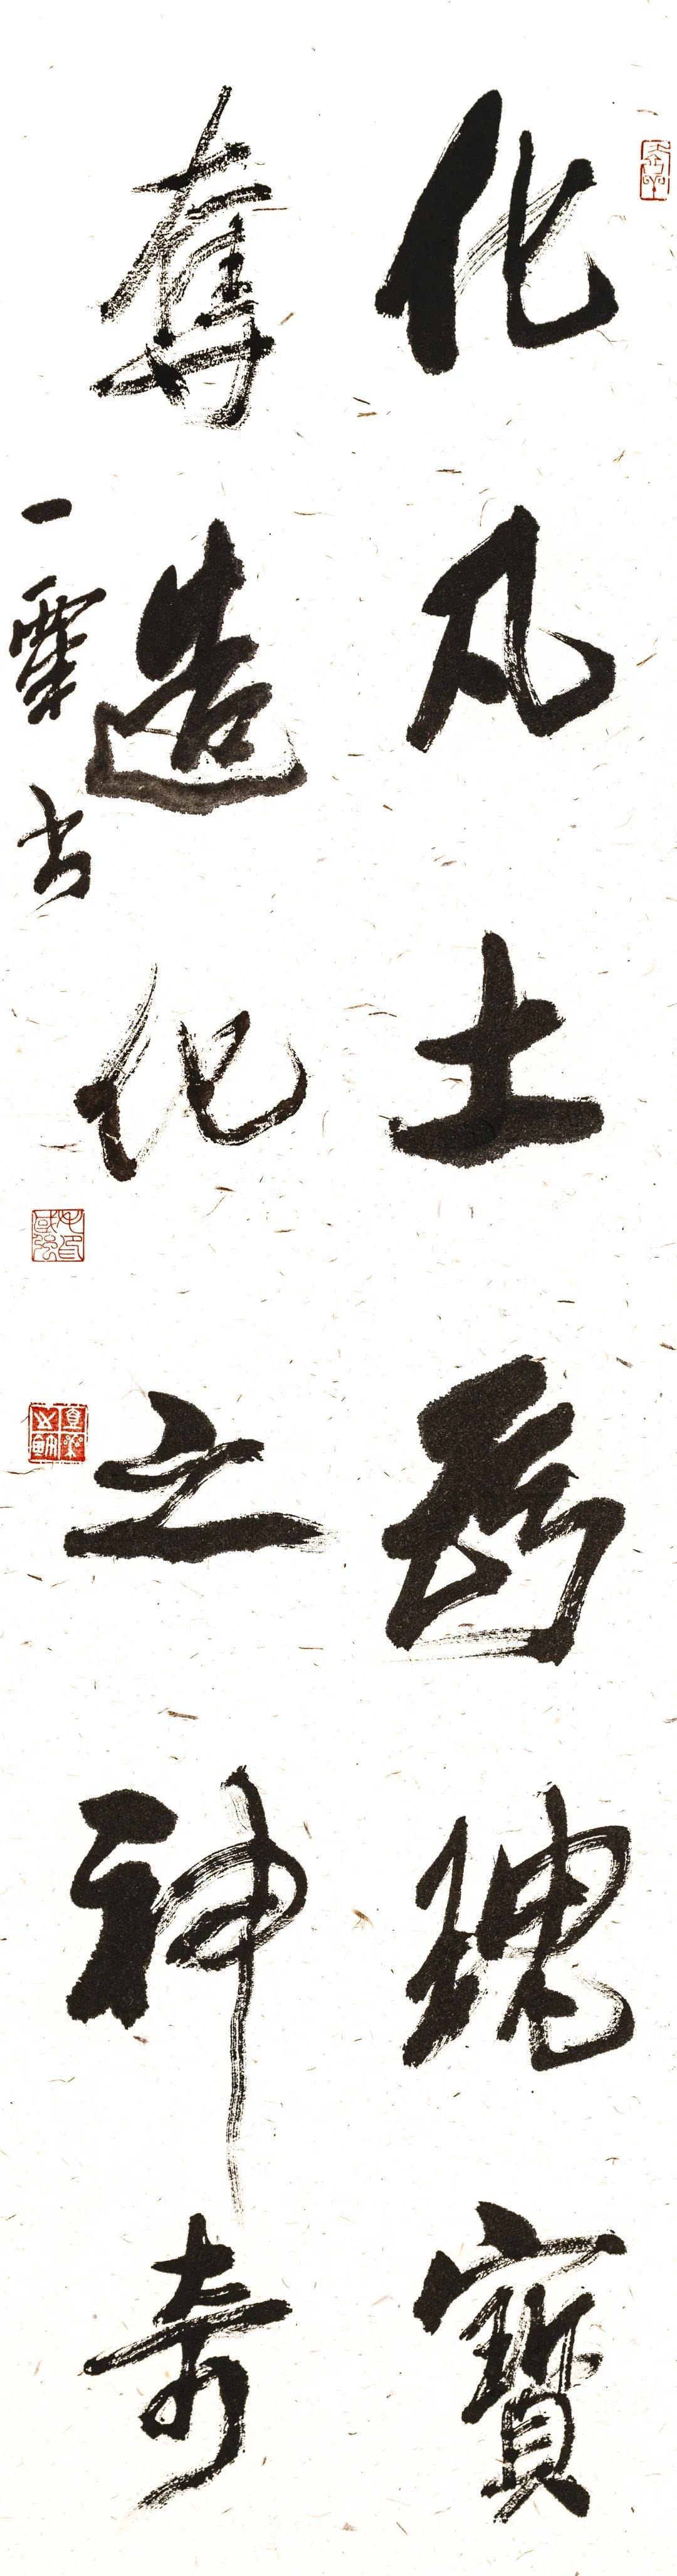 化凡土為瑰寶
奪造化之神奇
一粟书